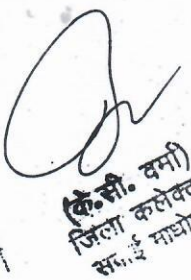 (के.सी. वर्मा)
जिला कलेक्टर
सवाई माधो